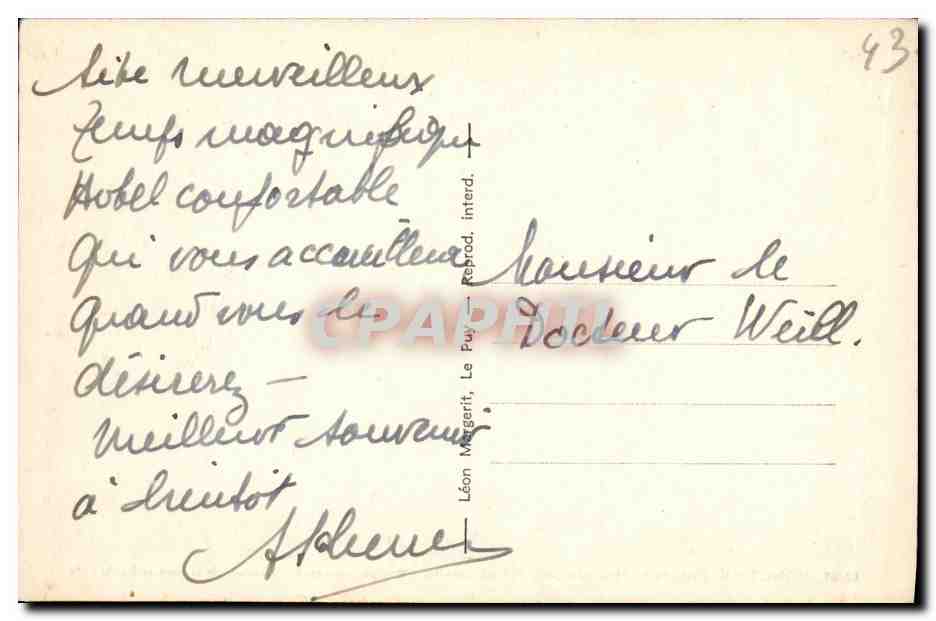 43
Site merveilleux
Temps magnifique
Hotel confortable
qui vous accueillera
quand vous le
désirerez —
Meilleur souvenir
à bientôt
Monsieur le
Docteur Weill.
Léon Margerit, Le Puy — Reprod. interd.
CPAPHIL